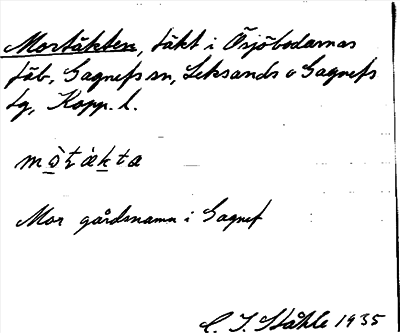 Mortäkten, täkt i Ösjöbodarnas
fäb, Gagnefs sn, Leksands o Gagnefs
tg, Kopp. l.
Mor gårdsnamn i Gagnef
C. I. Ståhle 1935